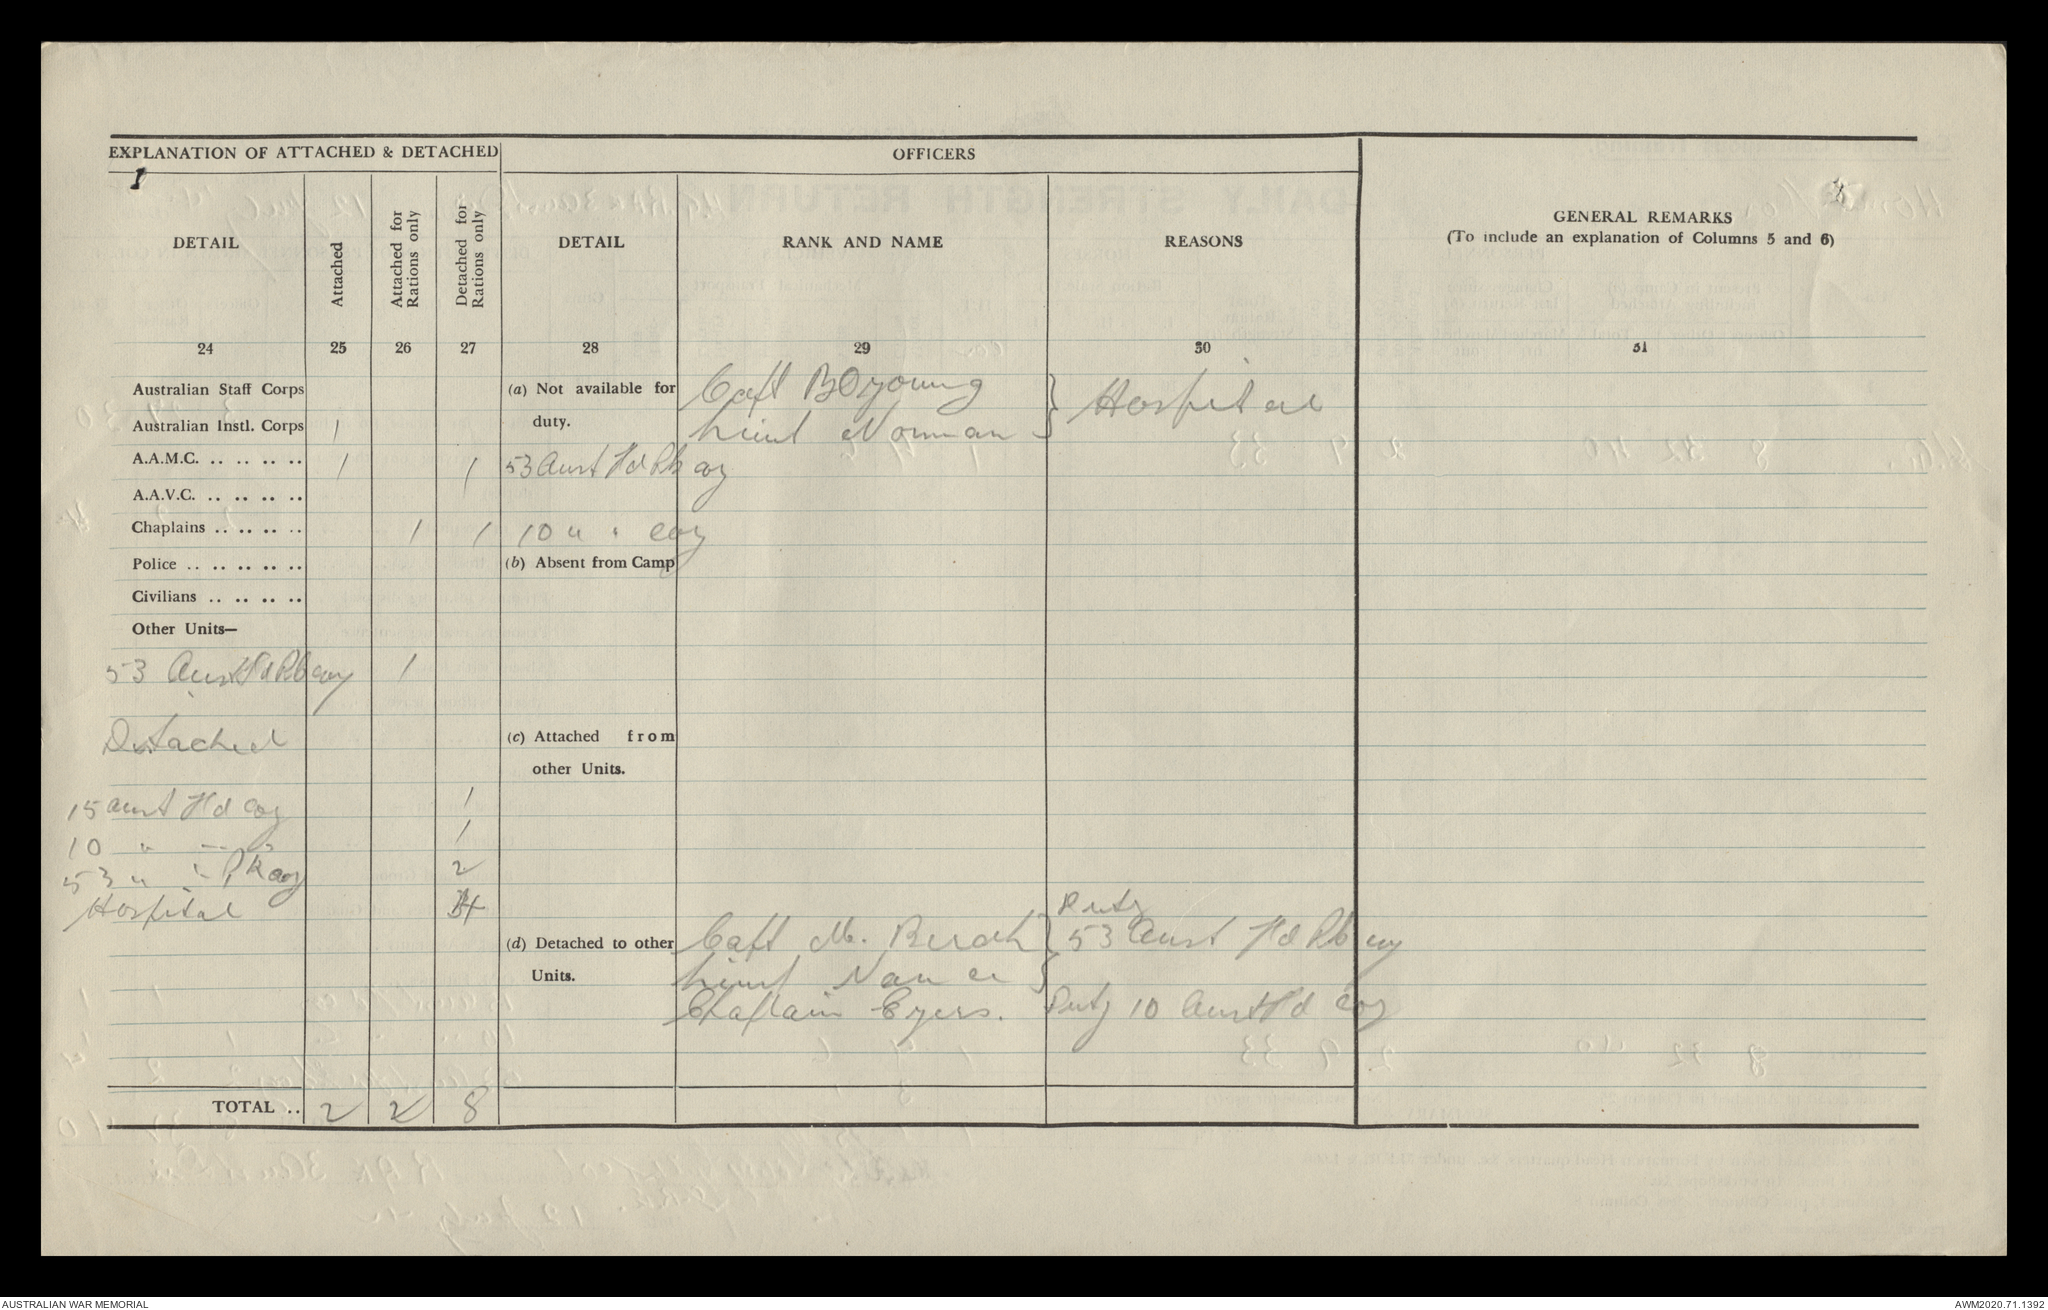 EXPLANATION OF ATTACHED & DETACHED
OFFICERS
1
DETAIL
Attached
Attached for Rations only
Detached for Rations only
DETAIL
RANK AND NAME
REASONS
GENERAL REMARKS
(To include an explanation of Columns 5 and 6)
24 25 26 27 28 29 30 31
Australian Staff Corps
(a) Not available for
Capt B O Young
} Hospital
Australian Instl. Corps 1
duty.
Lieut Norman
A.A.M.C. .. .. .. .. 1 1 53 Aust Fd Pk Coy
A.A.V.C. .. .. .. ..
Chaplains .. .. .. .. 1 1 10 " " Coy
Police .. .. .. .. ..
(b) Absent from Camp
Civilians .. .. .. ..
Other Units—
53 Aust Fd Pk Coy 1
Detached
(c) Attached from
other Units.
15 Aust Fd Coy 1
10 " " " 1
53 " " Pk Coy 2
Hospital 4
Duty
(d) Detached to other
Capt M.
} 53 Aust Fd Pk Coy
Units.
Lieut
Chaplain Eyers. Duty 10 Aust Fd Coy
TOTAL .. 2 2 8
AUSTRALIAN WAR MEMORIAL
AWM2020.71.1392